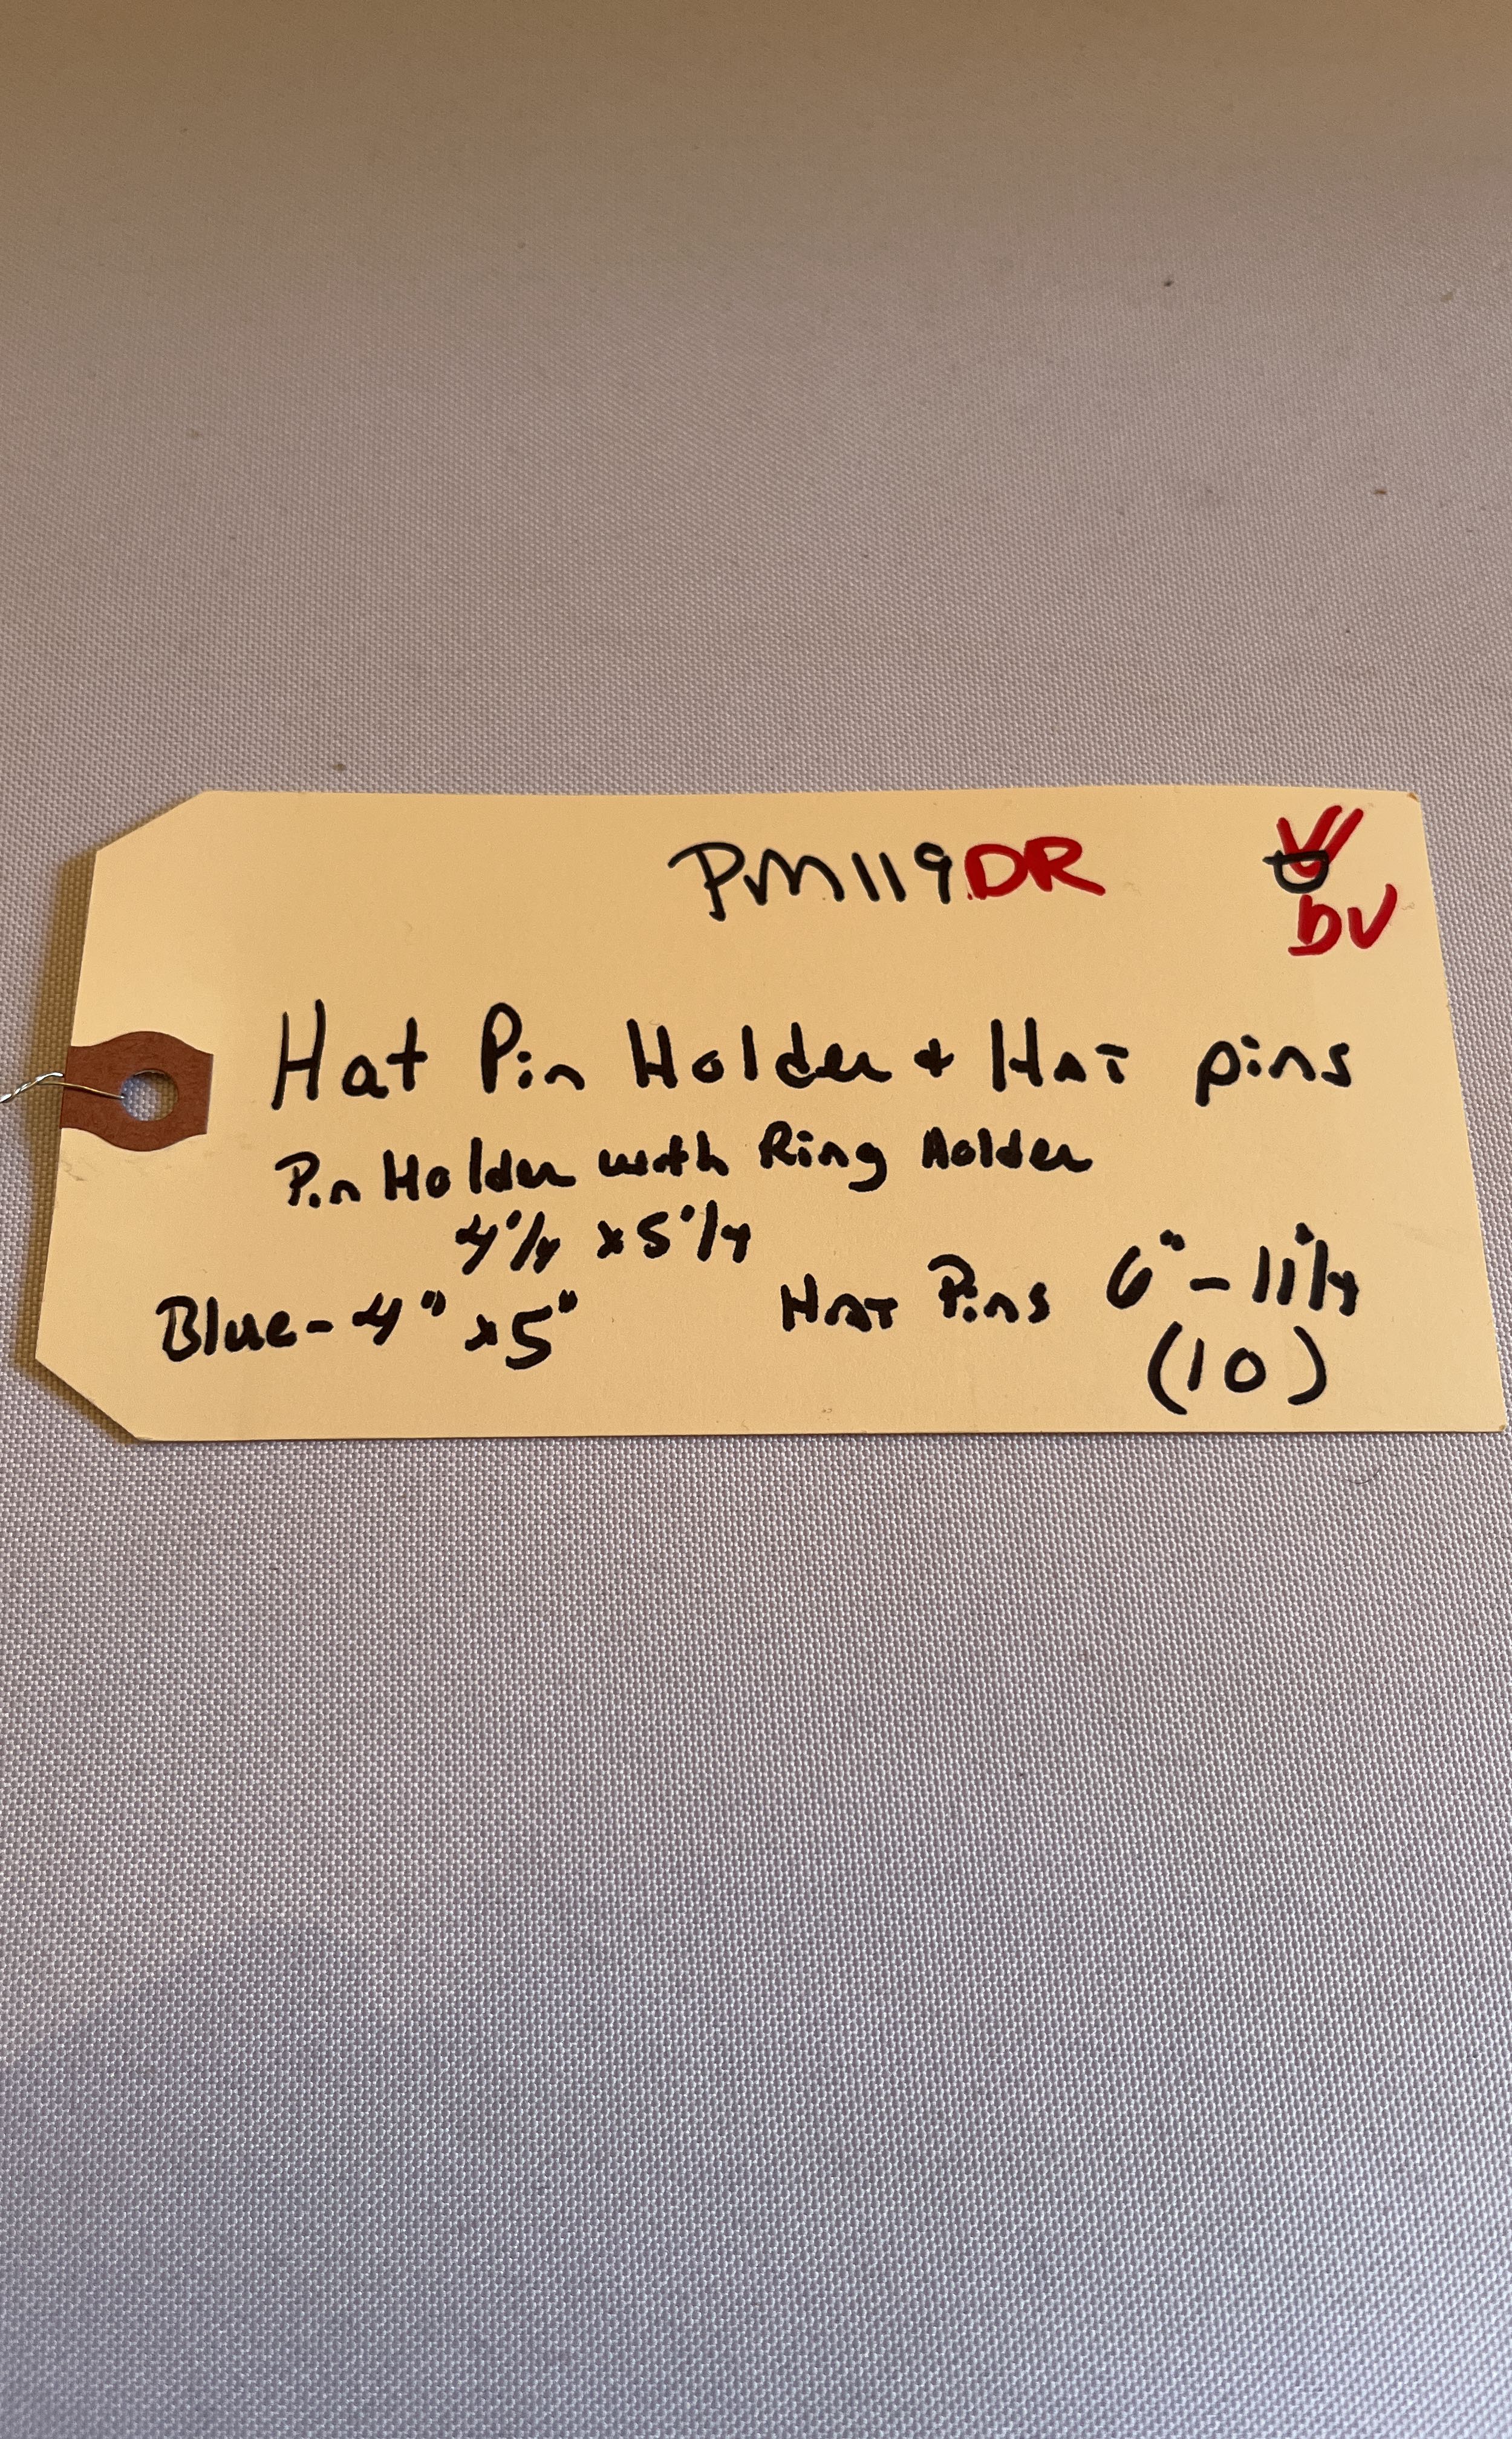 PM119DR
DV
Hat Pin Holder + HAT pins
Pin Holder with Ring Holder
4 1/4 x 5 1/4
Blue - 4" x 5"
HAT Pins 6" - 11 1/4
(10)